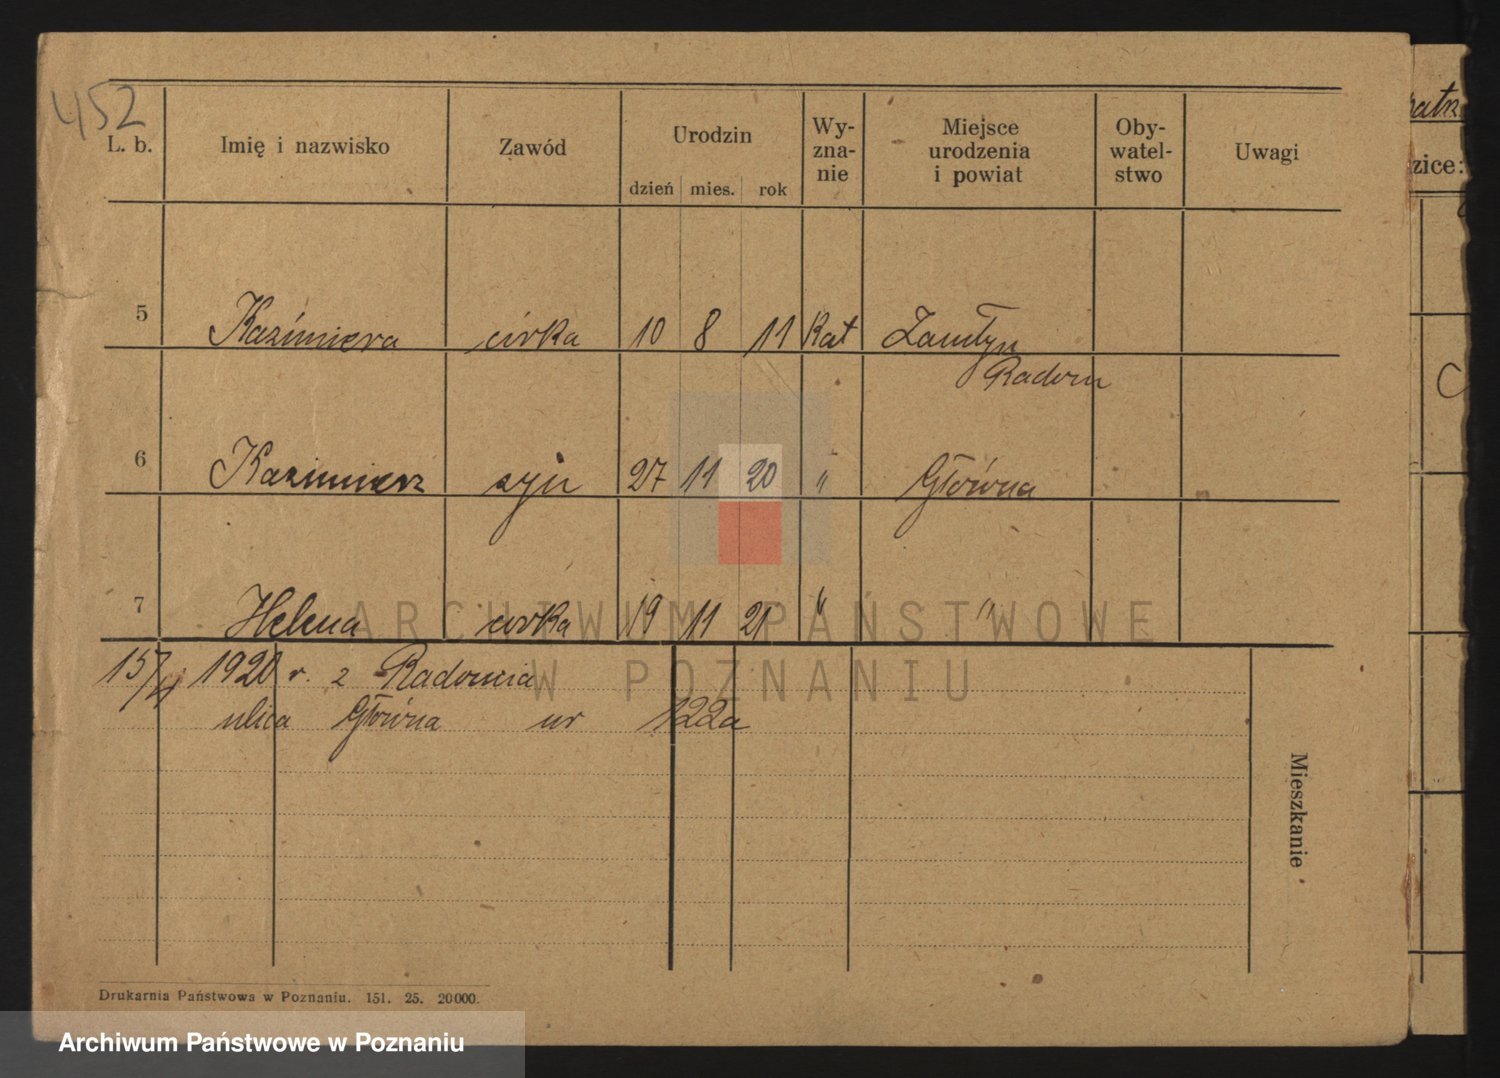 452
L. b. Imię i nazwisko Zawód Urodzin dzień mies. rok Wy-zna-nie Miejsce urodzenia i powiat Oby-watel-stwo Uwagi
5 Kazimiera córka 10 8 11 Kat
Radom
6 Kazimierz syn 27 11 20 " Główna
7 Helena córka 19 11 21 " "
15/4 1920 r. z Radomia
ulica Główna nr 122a
Mieszkanie
Drukarnia Państwowa w Poznaniu. 151. 25. 20000.
zice:
ARCHIWUM PAŃSTWOWE
W POZNANIU
Archiwum Państwowe w Poznaniu